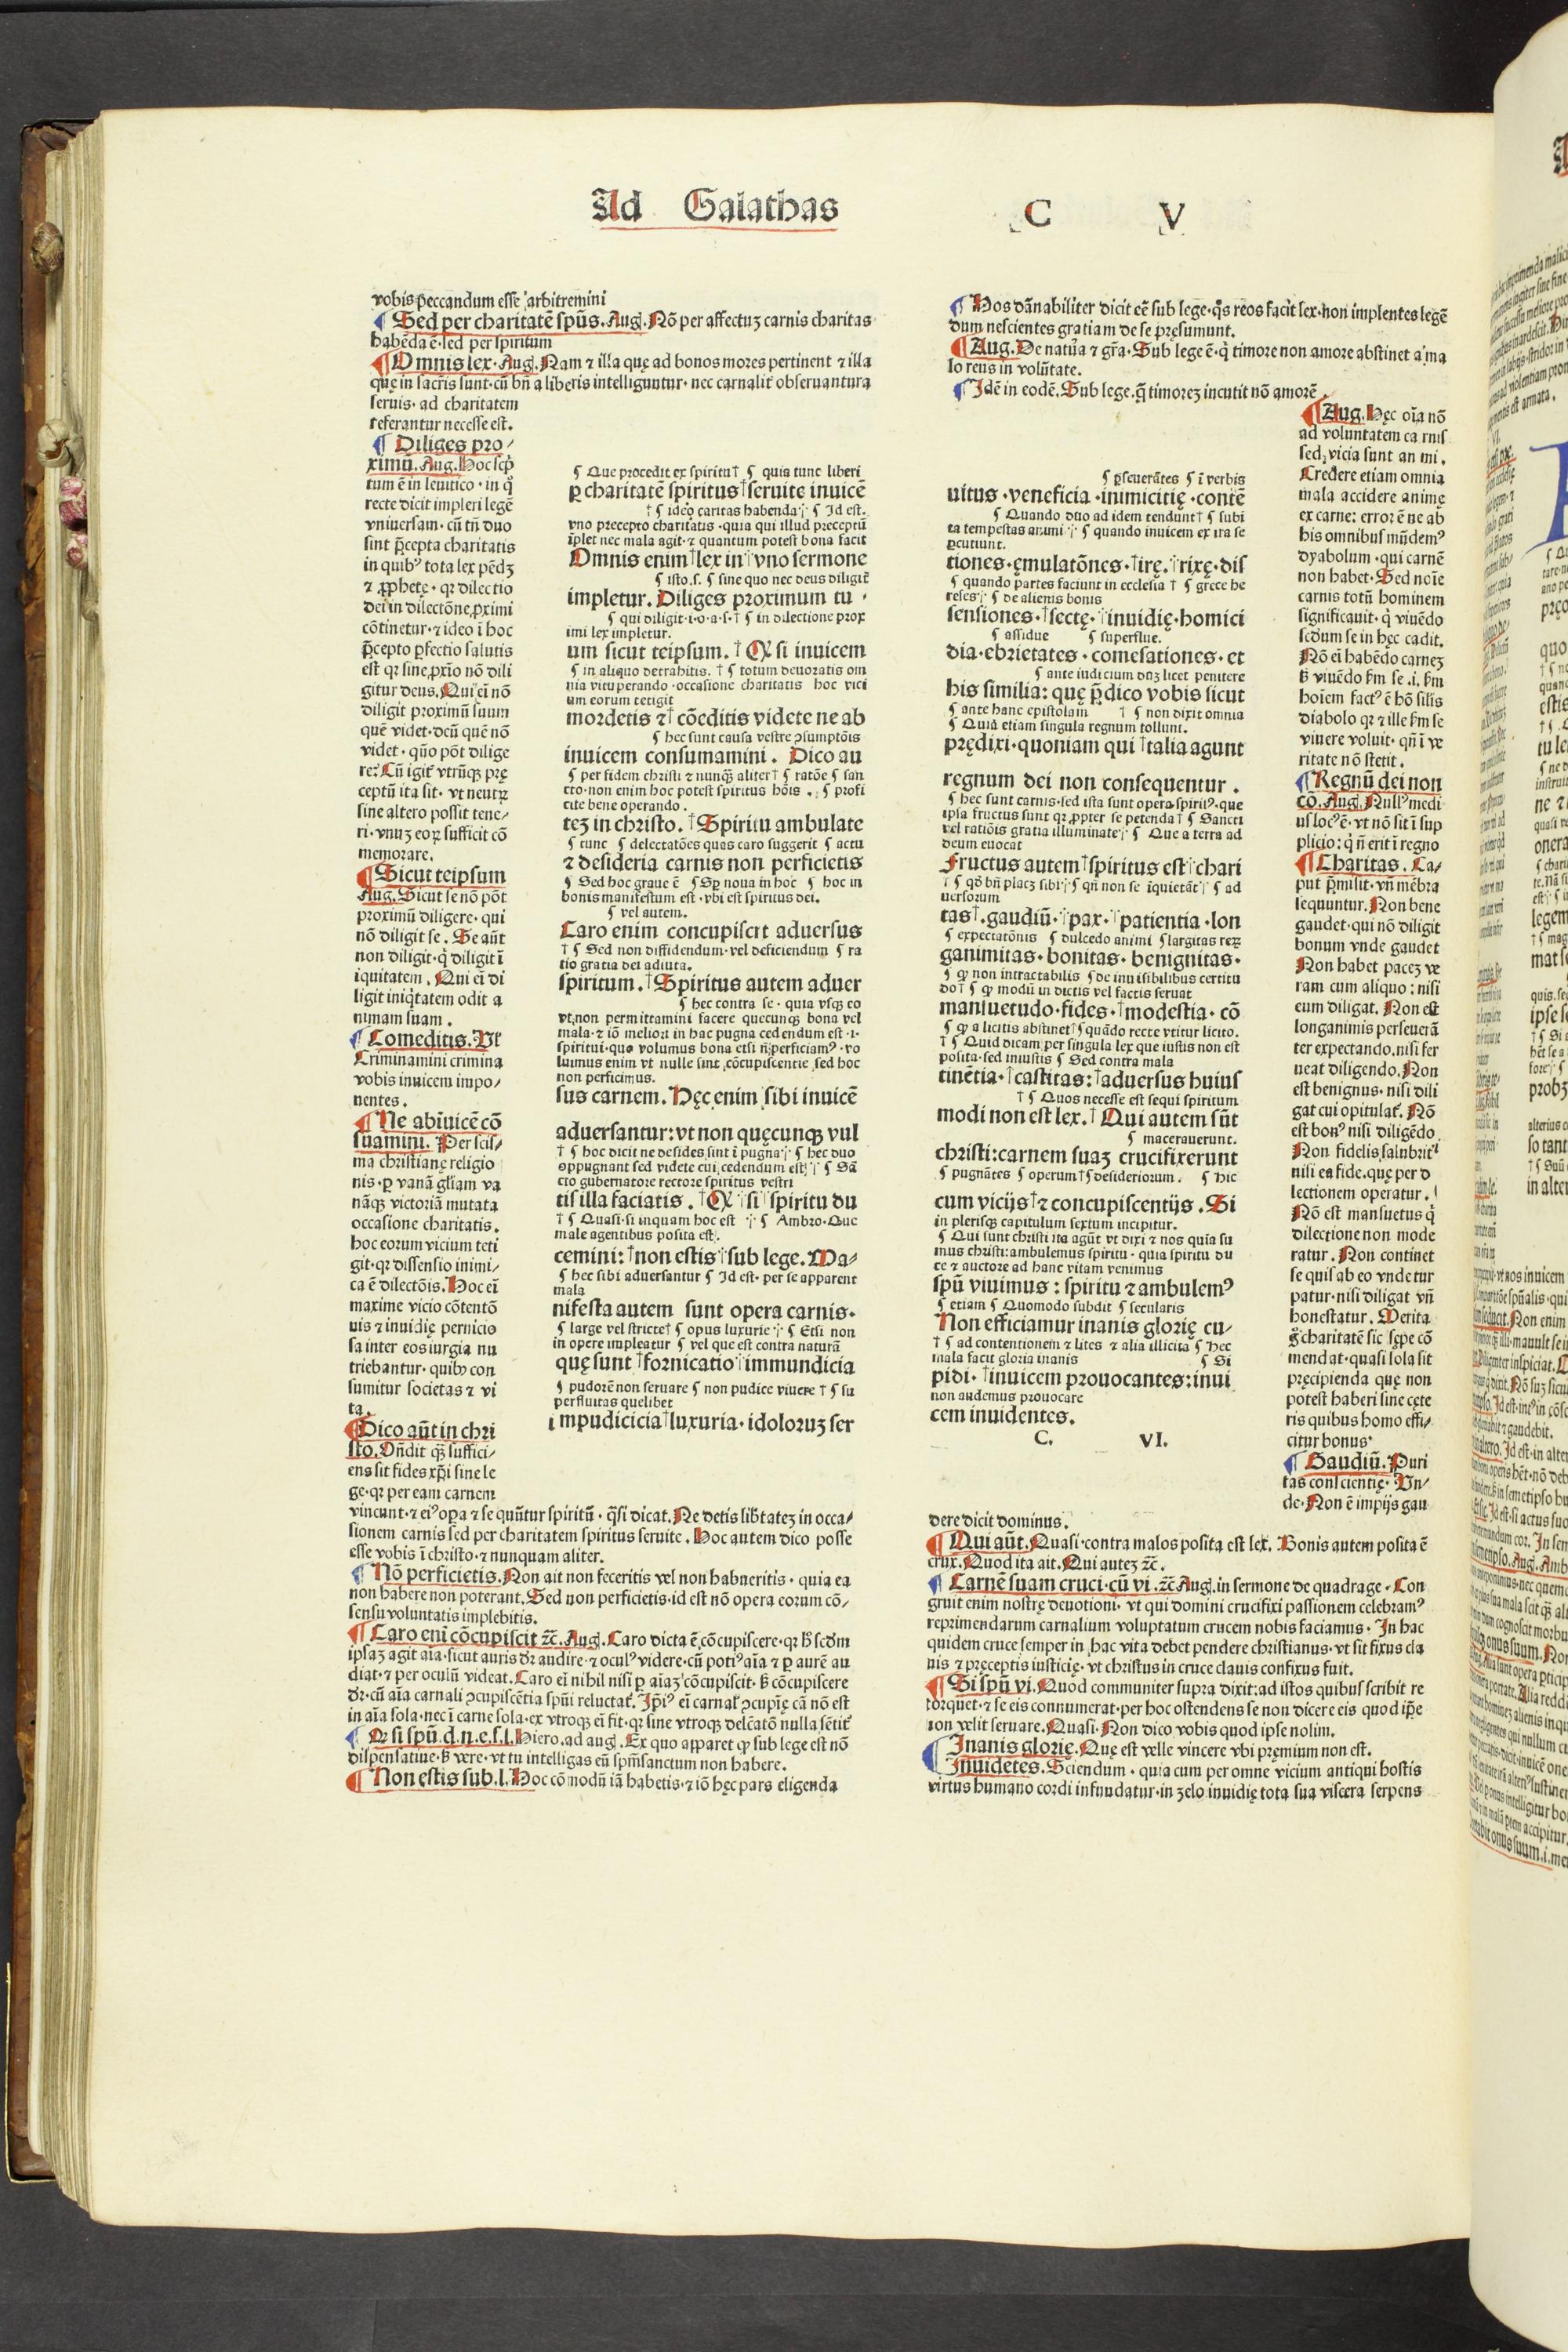 Ad Galathas
C V
vobis peccandum esse arbitremini
¶ Sed per charitatē spūs. Aug. Nō per affectuꝫ carnis charitas
habēda ē·sed per spiritum
¶ Omnis lex. Aug. Nam ⁊ illa quę ad bonos mores pertinent ⁊ illa
quę in sacrīs sunt·cū bn̄ a liberis intelliguntur· nec carnalit̄ obseruantura
seruis· ad charitatem
referantur necesse est.
¶ Diliges pro⸗
ximū. Aug. Hoc scp̄
tum ē in leuitico · in q̇
recte dicit impleri legē
vniuersam· cū tn̄ duo
sint p̄cepta charitatis
in quibꝰ tota lex pēdꝫ
⁊ ꝓphetę · qꝛ dilectio
dei in dilectōne ꝓximi
cōtinetur·⁊ ideo ī hoc
p̄cepto ꝑfectio salutis
est qꝛ sine ꝓxīo nō dili
gitur deus. Qui eī nō
diligit proximū suum
quē videt·deū quē nō
videt · qūo pōt dilige
re? Cū igit̄ vtrūqꝫ prę
ceptū ita sit· vt neutꝝ
sine altero possit tene⸗
ri· vnuꝫ eoꝝ sufficit cō
memorare.
¶ Sicut teipsum
Aug. Sicut se nō pōt
proximū diligere· qui
nō diligit se. Se aūt
non diligit·q̇ diligit ī
iquitatem. Qui eī di
ligit iniq̇tatem odit a
nimam suam.
¶ Comeditis. Vl̄
Criminamini crimina
vobis inuicem impo⸗
nentes.
¶ Ne abīuicē cō
suamini. Per scis⸗
ma christianę religio
nis· ꝑ vanā gl̄iam va
nāqꝫ victoriā mutata
occasione charitatis.
hoc eorum vicium teti
git·qꝛ dissensio inimi⸗
ca ē dilectōis. Hoc eī
maxime vicio cōtentō
uis ⁊ inuidię pernicio
sa inter eos iurgia nu
triebantur· quibꝰ con
sumitur societas ⁊ vi
ta.
¶ Dico aūt in chri
sto. On̄dit qꝫ suffici⸗
ens sit fides xp̄i sine le
ge·qꝛ per eam carnem
vincunt·⁊ eiꝰ oꝑa ⁊ se quūtur spiritū· q̄si dicat. Ne detis lib̄tateꝫ in occa⸗
sionem carnis sed per charitatem spiritus seruite. Hoc autem dico posse
esse vobis ī christo·⁊ nunquam aliter.
¶ Nō perficietis. Non ait non feceritis vel non habueritis· quia ea
non habere non poterant. Sed non perficietis·id est nō opera eorum cō⸗
sensu voluntatis implebitis.
¶ Caro enī cōcupiscit ⁊c̄. Aug. Caro dicta ē cōcupiscere·qꝛ h̄ scd̄m
ipsaꝫ agit aīa·sicut auris dr̄ audire·⁊ oculꝰ videre·cū potiꝰ aīa ⁊ ꝑ aurē au
diat·⁊ per oculū videat. Caro eī nihil nisi ꝑ aīaꝫ cōcupiscit· ẜ cōcupiscere
dr̄·cū aīa carnali ↄcupiscētia spūi reluctat̄. Ip̄iꝰ eī carnal̄ ↄcupīę cā nō est
in aīa sola·nec ī carne sola·ex vtroqꝫ eī fit·qꝛ sine vtroqꝫ delc̄atō nulla sētit̄
¶ Qꝛ si spū d.n.e.s.l. Hiero. ad aug. Ex quo apparet qꝙ sub lege est nō
dispensatiue·ẜ vere·vt tu intelligas eū spm̄ sanctum non habere.
¶ Non estis sub.l. Hoc cōmodū iā habetis·⁊ iō hęc pars eligenda
¶ Que procedit ex spiritu† ¶ quia tunc liberi
ꝑ charitatē spiritus†seruite inuicē
† ¶ ideo caritas habenda·¶ Id est.
vno precepto charitatis ·quia qui illud preceptū
īplet nec mala agit·⁊ quantum potest bona facit
Omnis enim†lex in†vno sermone
¶ isto.s. ¶ sine quo nec deus diligit̄
impletur. Diliges proximum tu ·
¶ qui diligit·i·o·a·s·† ¶ in dilectione prox
imi lex impletur.
um sicut teipsum. † Qꝙ si inuicem
¶ in aliquo detrahitis. † ¶ totum deuoratis om
nia vituperando ·occasione charitatis hoc vici
um eorum tetigit
mordetis ⁊† cōeditis videte ne ab
¶ hec sunt causa vestre ↄsumptōis
inuicem consumamini. Dico au
¶ per fidem christi ⁊ nunqꝫ aliter† ¶ ratōe ¶ san
cto·non enim hoc potest spiritus hōis. ¶ profi
cite bene operando.
teꝫ in christo. †Spiritu ambulate
¶ tunc ¶ delectatōes quas caro suggerit ¶ actu
⁊ desideria carnis non perficietis
¶ Sed hoc graue ē ¶ Sꝑ noua in hoc ¶ hoc in
bonis manifestum est ·vbi est spiritus dei.
¶ vel autem.
Caro enim concupiscit aduersus
† ¶ Sed non diffidendum·vel deficiendum ¶ ra
tio gratia dei adiuta.
spiritum. †Spiritus autem aduer
¶ hec contra se· quia vsqꝫ eo
vt non permittamini facere quecunqꝫ bona vel
mala·⁊ iō meliori in hac pugna cedendum est ·i·
spiritui·quo volumus bona etsi n̄ perficiamꝰ·vo
luimus enim vt nulle sint cōcupiscentie sed hoc
non perficimus.
sus carnem. Hęc enim sibi inuicē
aduersantur: vt non quęcunqꝫ vul
† ¶ hoc dicit ne desides sint ī pugna·¶ hec duo
oppugnant sed videte cui cedendum est·¶ Sā
cto gubernatore rectore spiritus vestri
tis illa faciatis. †Qꝙ si†spiritu du
† ¶ Quasi·si inquam hoc est ¶ Ambro·Que
male agentibus posita est.
cemini: †non estis†sub lege. Ma⸗
¶ hec sibi aduersantur ¶ Id est· per se apparent
mala
nifesta autem sunt opera carnis·
¶ large vel stricte† ¶ opus luxurie ¶ Etsi non
in opere impleatur ¶ vel que est contra naturā
quę sunt †fornicatio†immundicia
¶ pudorē non seruare ¶ non pudice viuere † ¶ su
perfluitas quelibet
impudicicia†luxuria·idoloruꝫ ser
¶ Hos dānabiliter dicit eē sub lege·q̇s reos facit lex·non implentes legē
dum nescientes gratiam de se pręsumunt.
¶ Aug. De natura ⁊ gr̄a. Sub lege ē·q̇ timore non amore abstinet a ma
lo reus in volūtate.
¶ Idē in eodē. Sub lege·q̄ timoreꝫ incutit nō amorē.
¶ ꝑseuerātes ¶ ī verbis
uitus·veneficia·inimicitię·contē
¶ Quando duo ad idem tendunt† ¶ subi
ta tempestas animi ¶ quando inuicem ex ira se
ꝑcutiunt.
tiones·ęmulatōnes·†irę·†rixę·dis
¶ quando partes faciunt in ecclesia † ¶ grece he
reses ¶ de alienis bonis
sensiones·†sectę·†inuidię·homici
¶ assidue ¶ superflue.
dia·ebrietates·comesationes·et
¶ ante iudicium duꝫ licet penitere
his similia: quę p̄dico vobis sicut
¶ ante hanc epistolam † ¶ non dixit omnia
¶ Quia etiam singula regnum tollunt.
prędixi·quoniam qui †talia agunt
regnum dei non consequentur.
¶ hec sunt carnis·sed ista sunt opera spiritꝰ·que
ipsa fructus sunt qꝛ ꝓpter se petenda† ¶ Sancti
vel ratiōis gratia illuminate ¶ Que a terra ad
deum euocat
Fructus autem†spiritus est†chari
† ¶ qō bn̄ placꝫ sibi ¶ qn̄ non se īquietāt ¶ ad
uersorum
tas†·gaudiū·†pax·†patientia·lon
¶ expectatōnis ¶ dulcedo animi ¶ largitas reꝝ
ganimitas·bonitas·benignitas·
¶ qꝙ non intractabilis ¶ de inuisibilibus certitu
do† ¶ qꝙ modū in dictis vel factis seruat
mansuetudo·fides·†modestia·cō
¶ qꝙ a licitis abstinet†¶ quādo recte vtitur licito.
† ¶ Quid dicam per singula lex que iustis non est
posita·sed iniustis ¶ Sed contra mala
tinētia·†castitas: †aduersus huius
† ¶ Quos necesse est sequi spiritum
modi non est lex. † Qui autem sūt
¶ macerauerunt.
christi: carnem suaꝫ crucifixerunt
¶ pugnātes ¶ operum†¶ desideriorum. ¶ hic
cum vicijs†⁊ concupiscentijs. Si
in plerisqꝫ capitulum sextum incipitur.
¶ Qui sunt christi ita agūt vt dixi ⁊ nos quia su
mus christi: ambulemus spiritu· quia spiritu du
ce ⁊ auctore ad hanc vitam venimus
spū viuimus: spiritu ⁊ ambulemꝰ
¶ etiam ¶ Quomodo subdit ¶ secularis
Non efficiamur inanis glorię cu⸗
† ¶ ad contentionem ⁊ lites ⁊ alia illicita ¶ Hec
mala facit gloria inanis ¶ Si
pidi·†inuicem prouocantes: inui
non audemus prouocare
cem inuidentes.
C. VI.
¶ Aug. Hęc oīa nō
ad voluntatem carnis
sed vicia sunt animi.
Credere etiam omnia
mala accidere animę
ex carne: error ē ne ab
his omnibus mūdemꝰ
dyabolum·qui carnē
non habet. Sed noīe
carnis totū hominem
significauit· q̇ viuēdo
scd̄um se in hęc cadit.
Nō eī habēdo carneꝫ
ẜ viuēdo ẜm se .i. ẜm
hoīem factꝰ ē hō sil̄is
diabolo qꝛ ⁊ ille ẜm se
viuere voluit· qn̄ ī ve
ritate nō stetit.
¶ Regnū dei non
cō. Aug. Nullꝰ medi
us locꝰ ē·vt nō sit ī sup
plicio: q̇ n̄ erit ī regno
¶ Charitas. Ca⸗
put p̄misit·vn̄ mēbra
sequuntur. Non bene
gaudet·qui nō diligit
bonum vnde gaudet
Non habet paceꝫ ve
ram cum aliquo: nisi
eum diligat. Non est
longanimis perseuerā
ter expectando·nisi fer
ueat diligendo. Non
est benignus· nisi dili
gat cui opitulat̄. Nō
est bonꝰ nisi diligēdo
Non fidelis salubrit̄
nisi ea fide·quę per d
lectionem operatur.
Nō est mansuetus q̇
dilectione non mode
ratur. Non continet
se quis ab eo vnde tur
patur·nisi diligat vn̄
honestatur. Merita
g̊ charitatē sic sępe cō
mendat·quasi sola sit
pręcipienda quę non
potest haberi sine cęte
ris quibus homo effi⸗
citur bonus·
¶ Gaudiū. Puri
tas conscientię· Vn⸗
de· Non ē impijs gau
dere dicit dominus.
¶ Qui aūt. Quasi·contra malos posita est lex. Bonis autem posita ē
crux. Quod ita ait. Qui auteꝫ ⁊c̄.
¶ Carnē suam cruci·cū vi.⁊c̄ Aug. in sermone de quadrage· Con
gruit enim nostrę deuotioni· vt qui domini crucifixi passionem celebramꝰ
reprimendarum carnalium voluptatum crucem nobis faciamus· In hac
quidem cruce semper in hac vita debet pendere christianus·vt sit fixus cla
uis ⁊ pręceptis iusticię·vt christus in cruce clauis confixus fuit.
¶ Si spū vi. Quod communiter supra dixit: ad istos quibus scribit re
torquet·⁊ se eis connumerat·per hoc ostendens se non dicere eis quod ip̄e
non velit seruare. Quasi·Non dico vobis quod ipse nolim.
¶ Inanis glorię. Quę est velle vincere vbi pręmium non est.
¶ Inuidētes. Sciendum· quia cum per omne vicium antiqui hostis
virtus humano cordi infundatur·in zelo inuidię tota sua viscera serpens